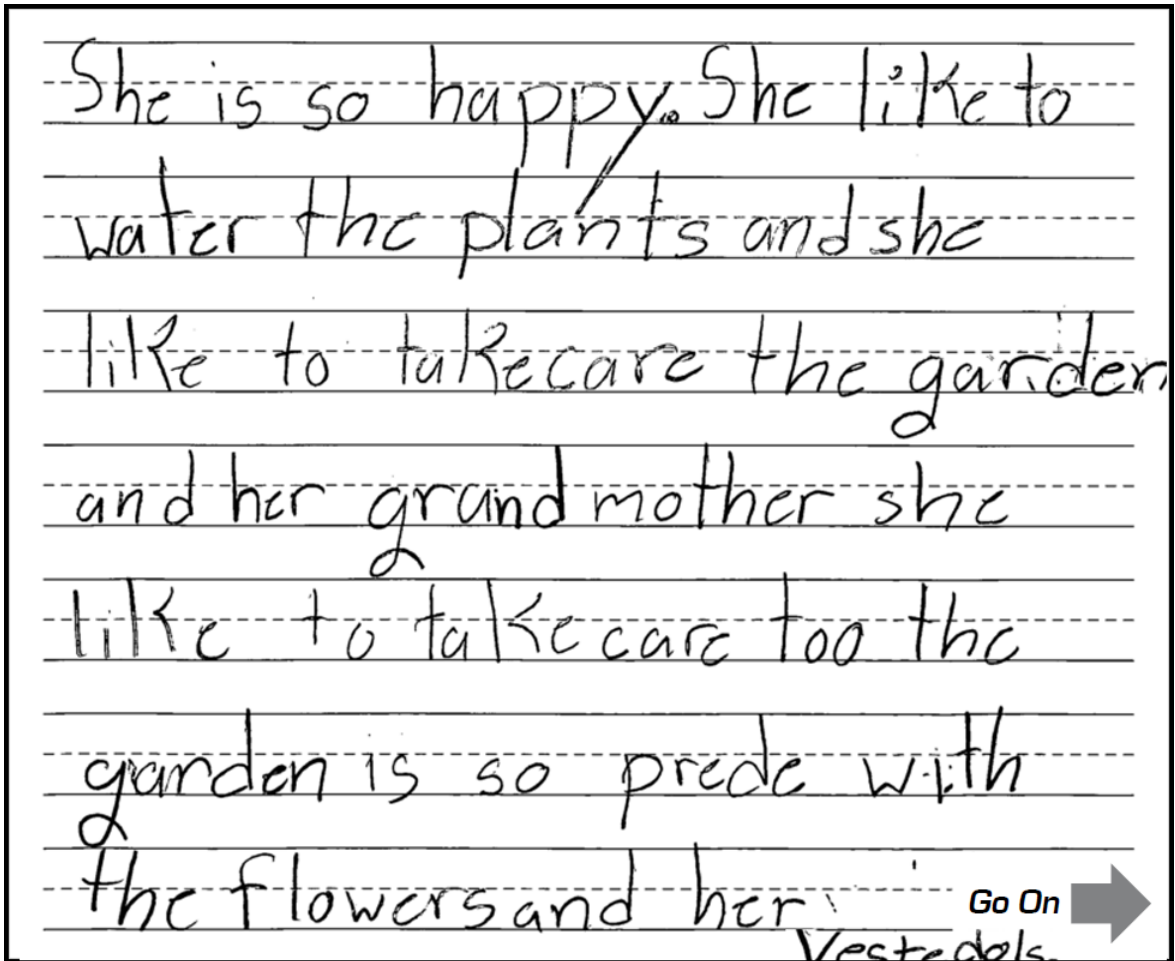 She is so happy. She like to
water the plants and she
like to takecare the garden
and her grandmother she
like to takecare too the
garden is so prede with
the flowers and her
Go On
Vestedols.